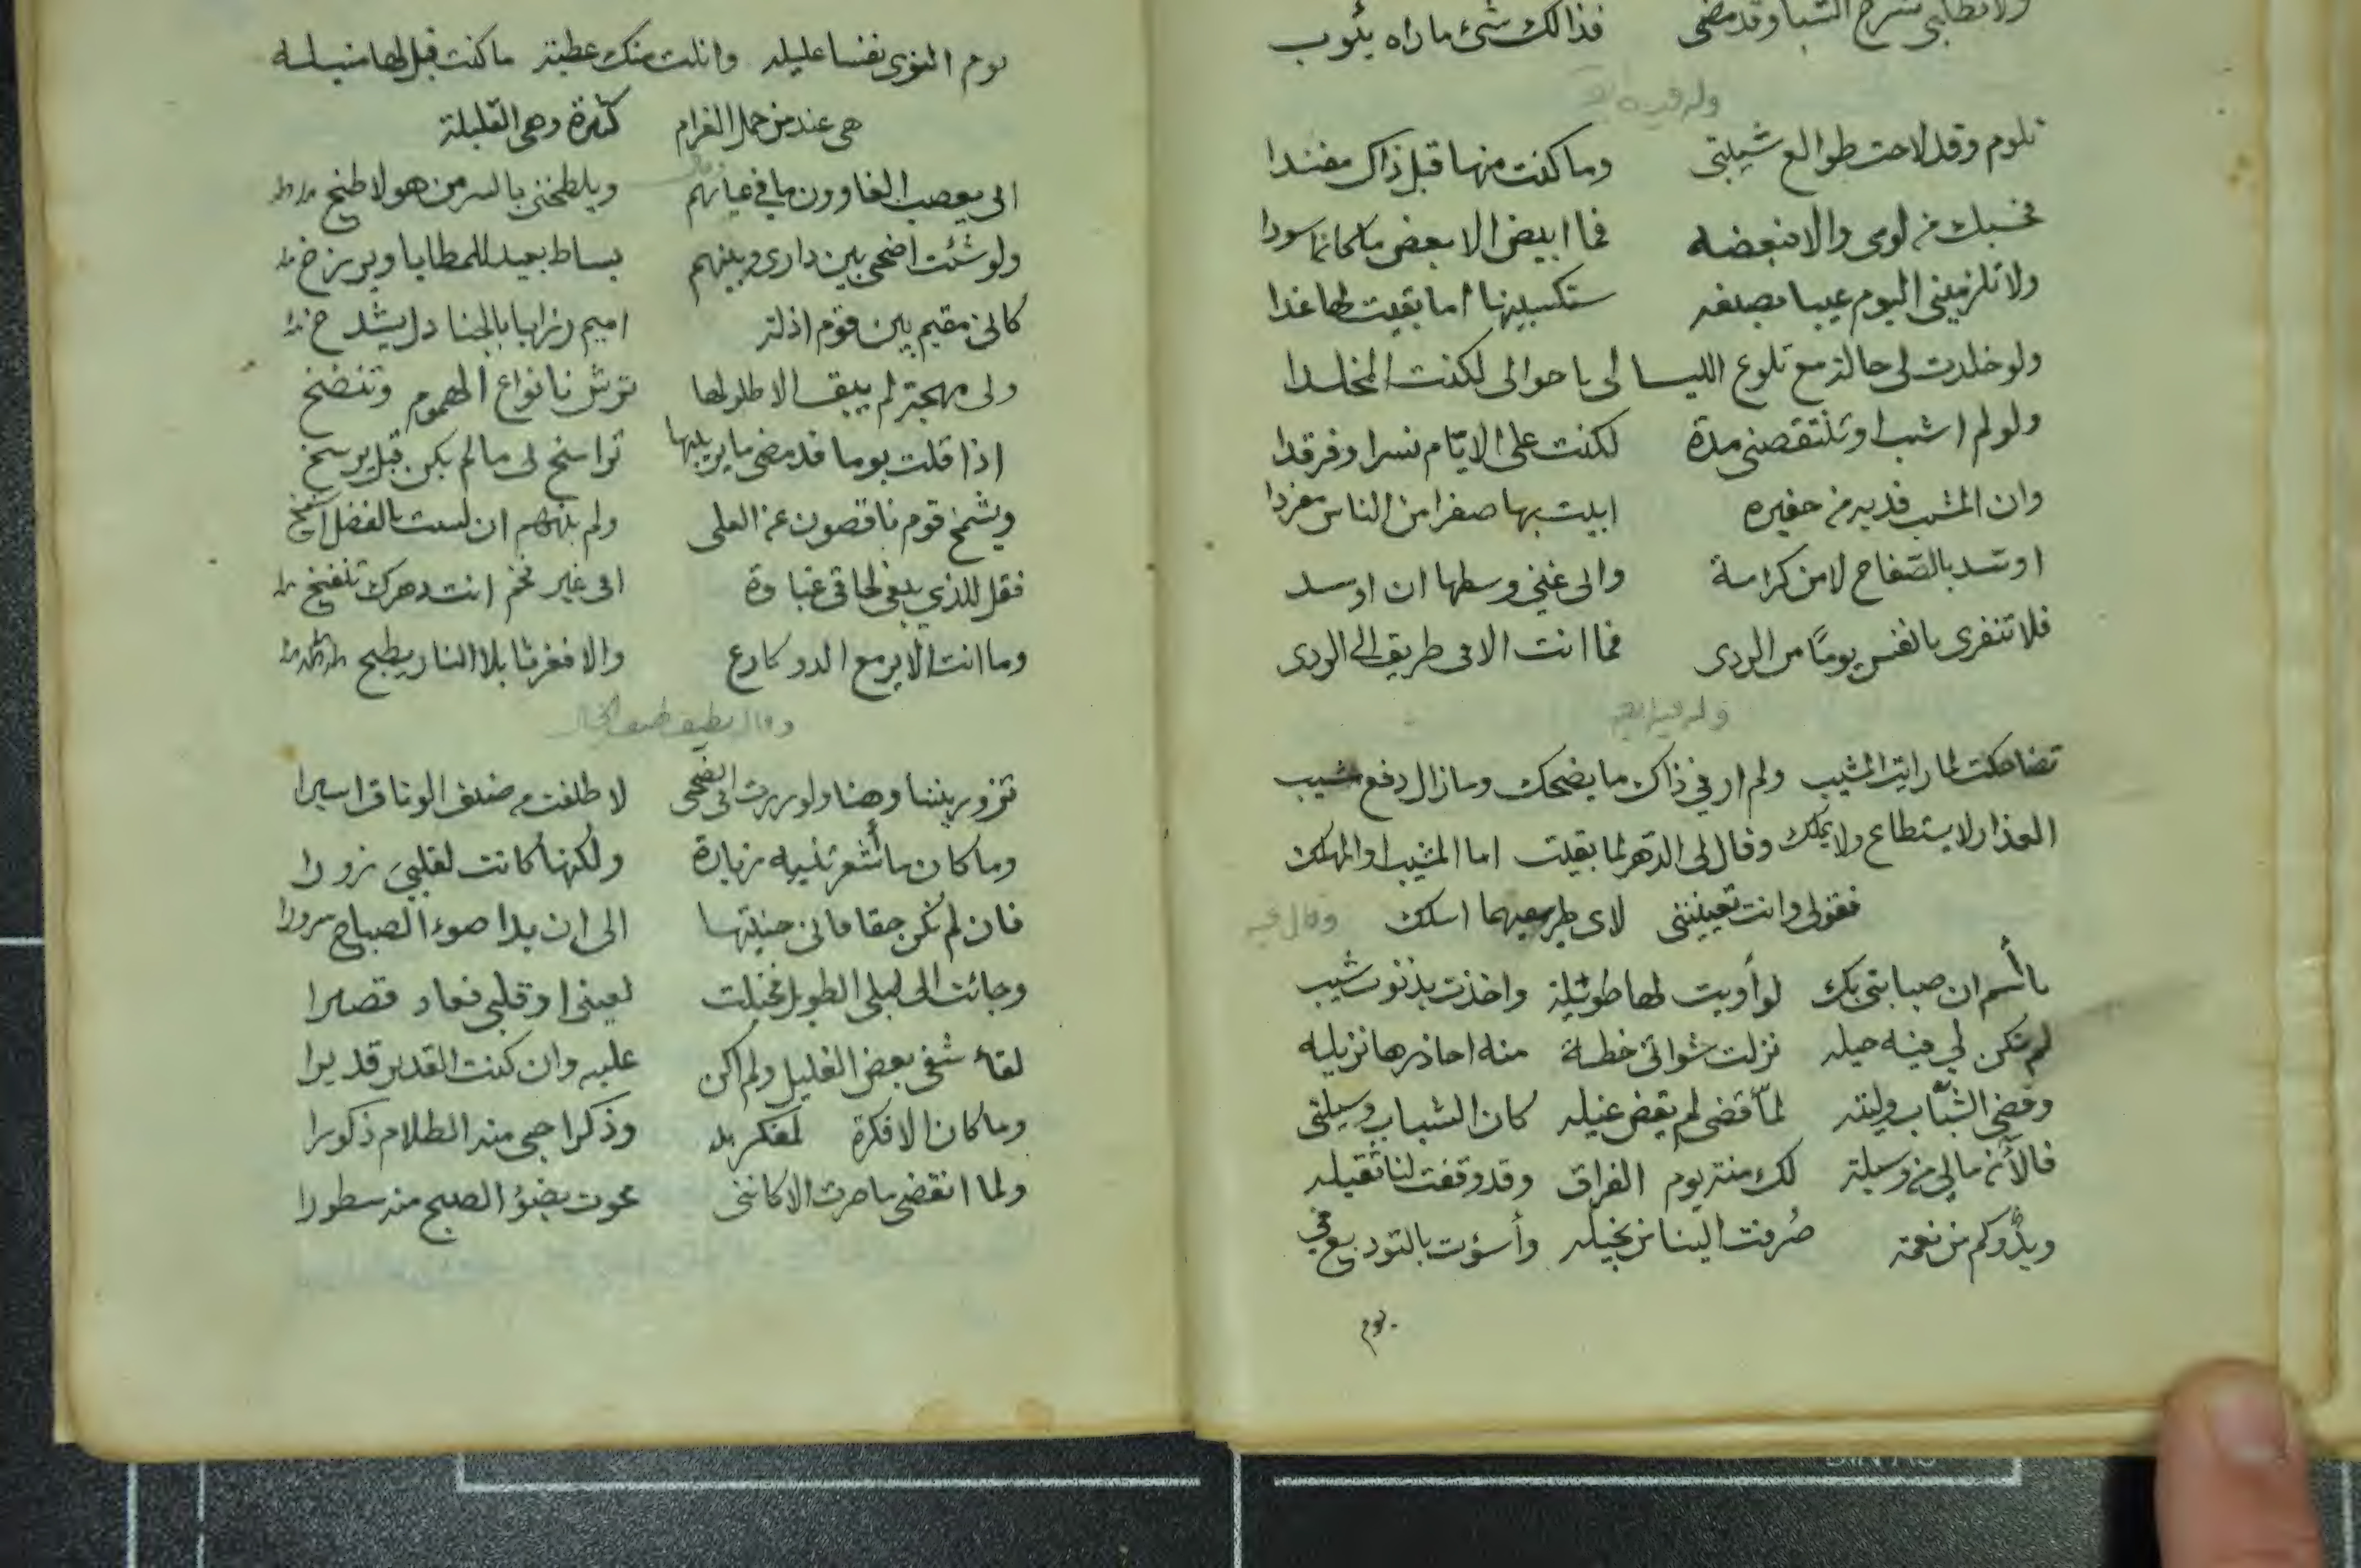 ولا تطلبي شرخ الشبا وقد مضى فذالك شئ ما راه يئوب
وله فيه
تلوم وقد لاحت طوالع شيبتى وما كنت منها قبل ذاك مفندا
فحسبك من لومى والا فبعضه فما ابيض الا بعض ما كانا سودا
ولا تلزمينى اليوم عيبا بصبغه ستكسبينها اما بقيت لها غدا
ولو خلدت لى حالة مع تلوع الليا لى با حوالى لكنت المخلدا
ولو لم اشب او تنتقصنى مدة لكنت على الايّام نسرا وفرقدا
وان المشيب فديه من حفيره ابيت بها صفرا من الناس مفردا
اوسّد بالصّفاح لا من كراسة وانى غنى وسطها ان اوسد
فلا تنفرى بالنفس يومًا من الردى فما انت الا فى طريق الى الردى
وله فيه ايضا
تضاحكت لما رايت المشيب ولم ار فى ذاك ما يضحك وما زال دفع مشيب
العذار لا يستطاع ولا يملك وقال لى الدهر لما بقيت اما المشيب او المهلك
فقولى وانت تعيبيننى لاى طريقيهما اسلك وقال فيه
ياأسم ان صبابتى بك لو أويت لها طويلة واخذت بذنوب شيب
لم تكن لى فيه حيله نزلت شواتى خطة منه احاذرها نزيله
وقضى الشّباب وليته لمّا قضى لم يقض غيله كان الشباب وسيلتى
فالأن ما لى من وسيلة لك منة يوم الفراق وقد وقفت لنا ثقيله
ويدٌ وكم من نعمة صُرفت الينا من بخيله وأسؤت بالتوديع فى
يوم
يوم النوى نفسا عليله وانلت منك عطية ما كنت قبل لها منيله
هى عند من حمل الغرام كثيرة وهى القليلة
الى يعصب الغاوون ما فى عيابهم ويلطخنى بالسر من هو لاطخ
ولو شئت اضحى بين دارى وبينهم بساط بعيد للمطايا وبرزخ
كانى مقيم بين قوم اذلة اميم رزايا بالجنادل يشدخ
ولى مهجة لم يبق الا طلولها ترش بانواع الهموم وتنضخ
اذا قلت يوما قد مضى ما يريبها تراسخ لى ما لم يكن قبل يرسخ
ويشمخ قوم ناقصون عن العلى ولم ينههم ان لست بالفضل اشمخ
فقل للذى يبغى لحاقى غباوة افى غير فخم انت دهرك تنفخ
وما انت الا يرمع الدو كارع والا فغرثا بلا النار يطبخ
وقال يصف طيف الخيال
تزور بيننا وهنا ولو زرت فى الضحى لا طلقت من ضنف الوثاق اسيرا
وما كان ما أشعرتنيه زيارة ولكنها كانت لقلبى زورا
فان لم تكن حقا فانى جنيتها الى ان بدا ضوء الصباح سرورا
وجائت الى ليلى الطويل فخيلت لعينى او قلبى فعاد قصيرا
لقاء شفى بعض الغليل ولم اكن عليه وان كنت القدير قديرا
وما كان الا فكرة لمفكر بد وذكرا جى منه الظلام ذكورا
ولما انقضى ما صرت الا كاننى محوت بضؤ الصبح منه سطورا